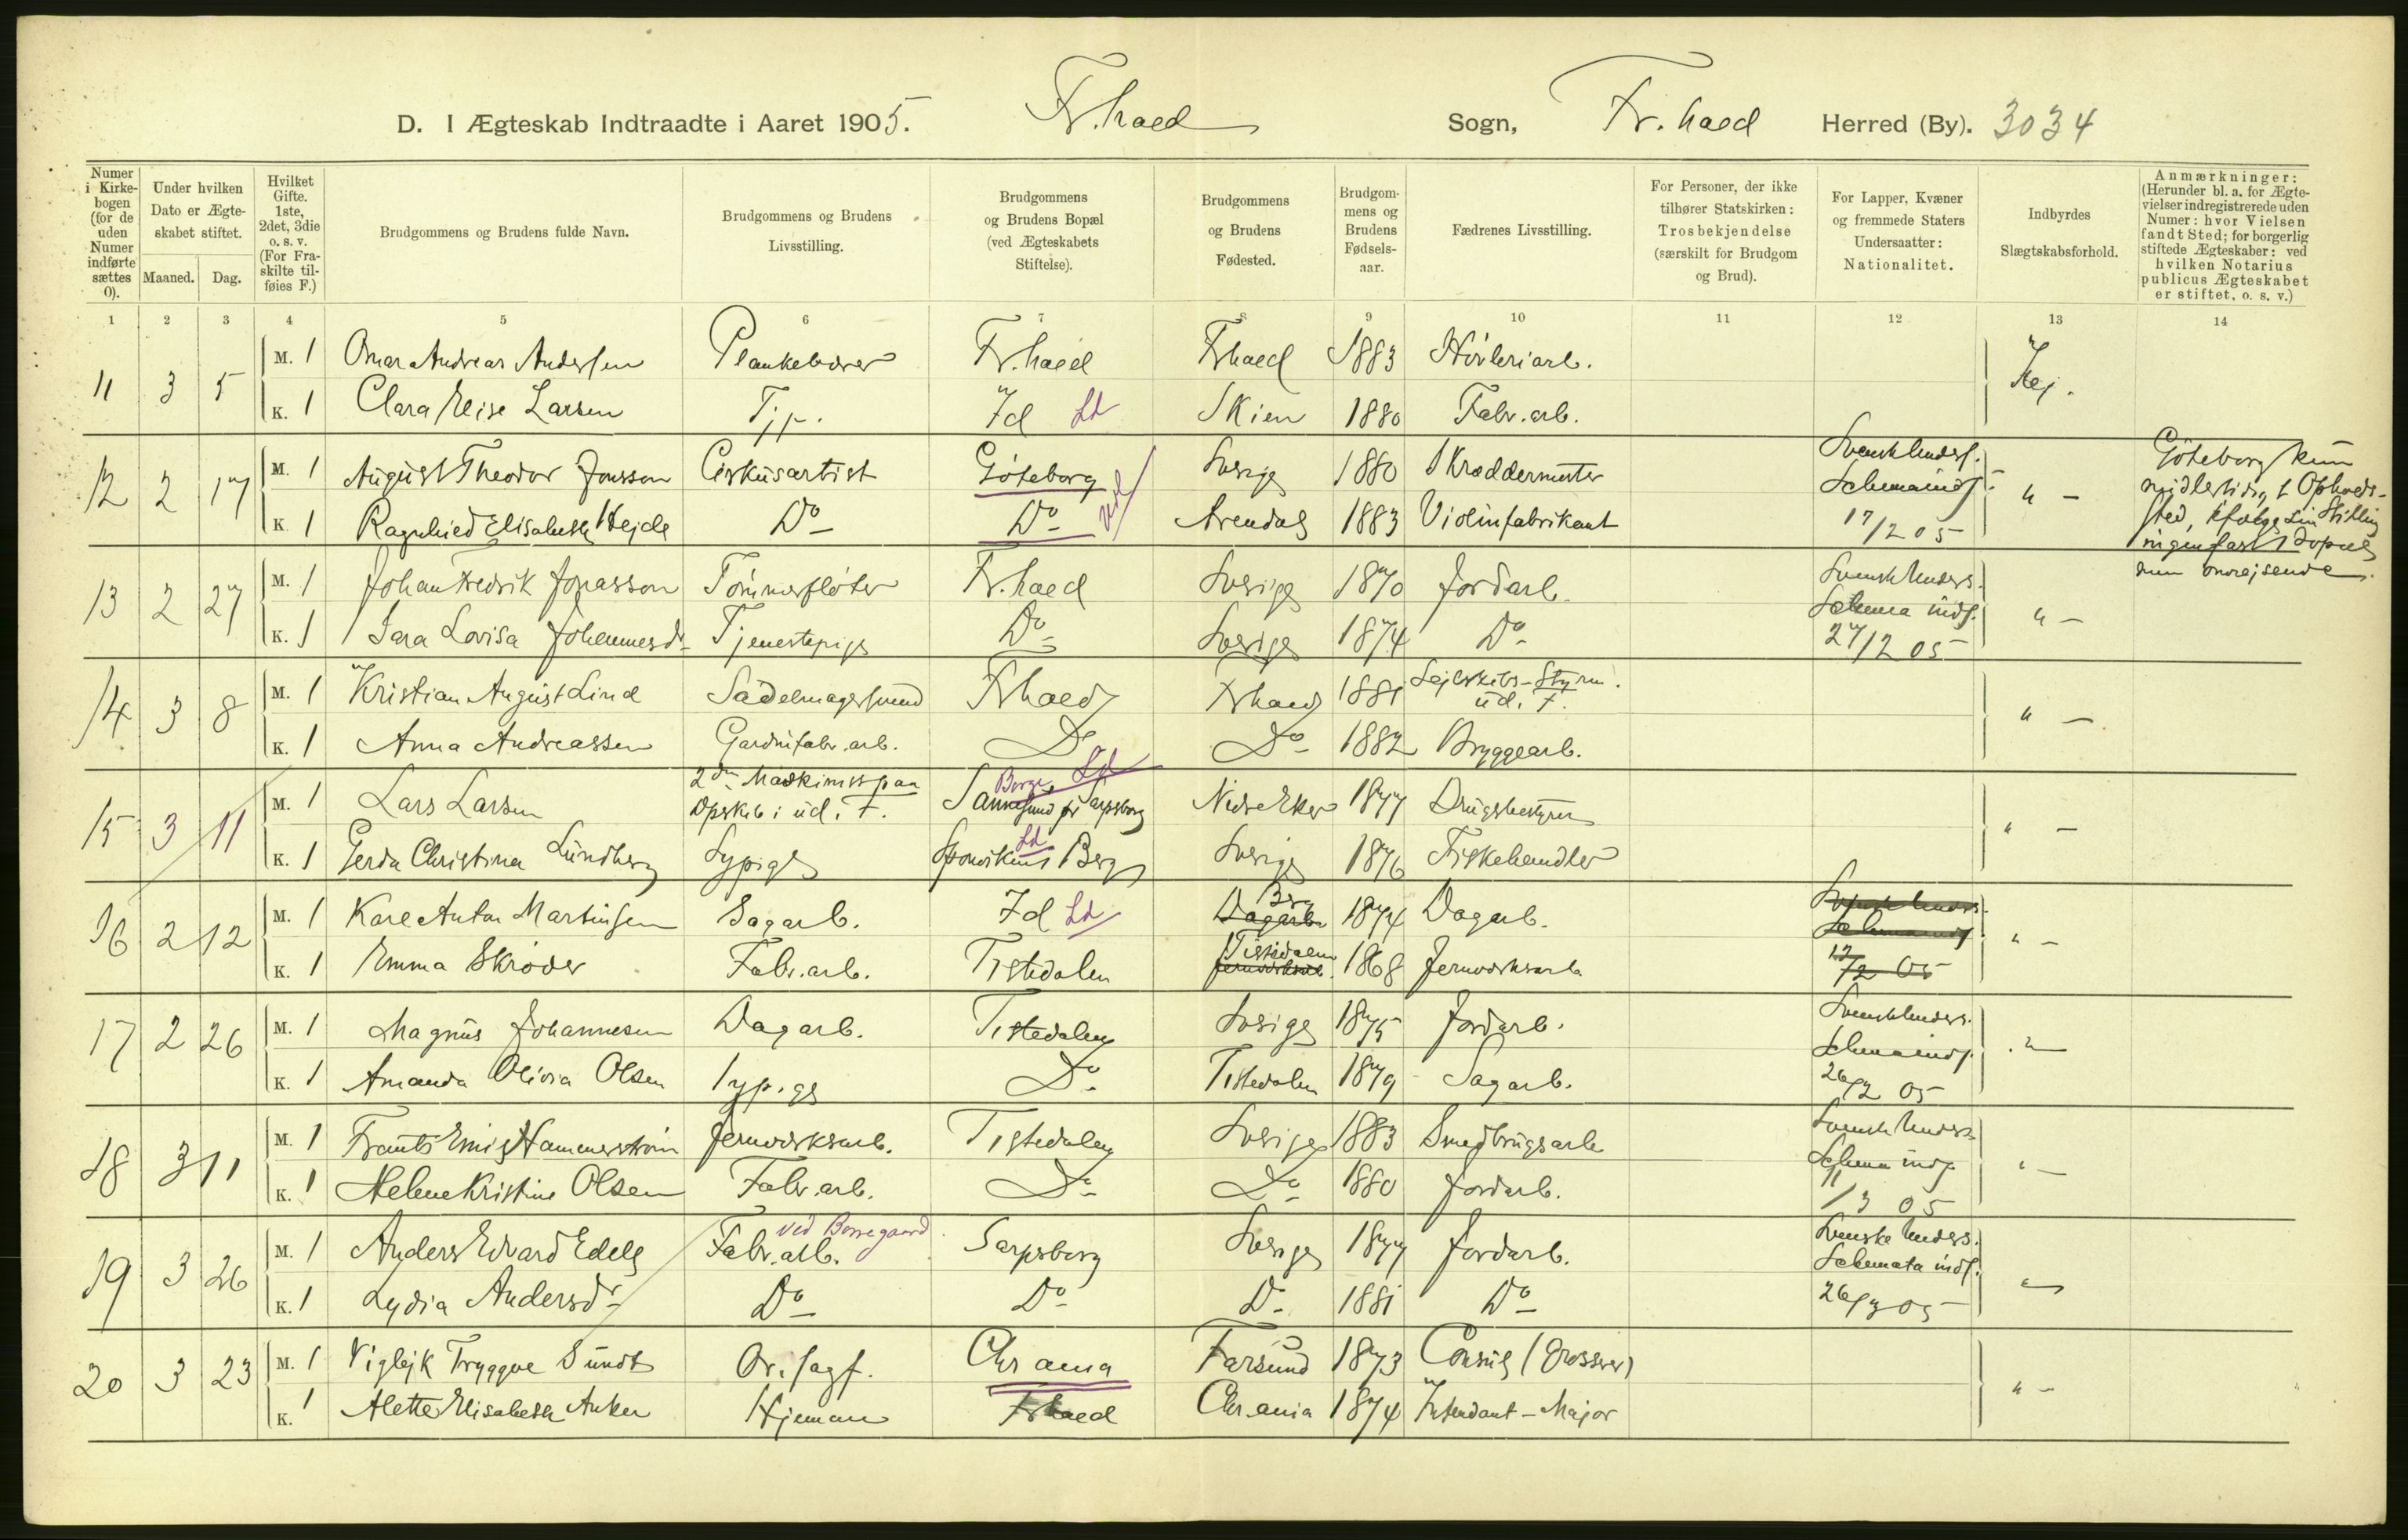 D. I Ægteskab Indtraadte i Aaret 1905. Fr.hald Sogn, Fr. hald Herred (By). 3034
Numer i Kirkebogen (for de uden Numer indførte sættes 0).
Under hvilken Dato er Ægteskabet stiftet.
Maaned. Dag.
Hvilket Gifte. 1ste, 2det, 3die o. s. v. (For Fraskilte tilføies F.)
Brudgommens og Brudens fulde Navn.
Brudgommens og Brudens Livsstilling.
Brudgommens og Brudens Bopæl (ved Ægteskabets Stiftelse).
Brudgommens og Brudens Fødested.
Brudgommens og Brudens Fødselsaar.
Fædrenes Livsstilling.
For Personer, der ikke tilhører Statskirken: Trosbekjendelse (særskilt for Brudgom og Brud).
For Lapper, Kvæner og fremmede Staters Undersaatter: Nationalitet.
Indbyrdes Slægtskabsforhold.
Anmærkninger: (Herunder bl. a. for Ægtevielser indregistrerede uden Numer: hvor Vielsen fandt Sted; for borgerlig stiftede Ægteskaber: ved hvilken Notarius publicus Ægteskabet er stiftet, o. s. v.)
1 2 3 4 5 6 7 8 9 10 11 12 13 14
11 3 5 M. 1 Omar Andreas Andersen Plankebærer Fr.hald Frhald 1883 Høvleriarb. Nej.
K. 1 Clara Elise Larsen Tjp. Id Ld Skien 1880 Fabr.arb.
12 2 17 M. 1 August Theodor Jonsson Cirkusartist Göteborg Sverige 1880 Skræddermester Svensk Unders. Schema indf. 17/2 05 " -
K. 1 Ragnhild Elisabeth Hejde Do Do Arendal 1883 Violinfabrikant
Göteborg kun
midlertidig Opholds-
sted, ifølge sin Stilling
ingen fast Bopæl
men omrejsende.
13 2 27 M. 1 Johan Fredrik Jonasson Tømmerfløter Fr.hald Sverige 1870 Jordarb. Svensk Unders. Schema indf. 27/2 05 " -
K. 1 Sara Lovisa Johannesd. Tjenestepige Do Sverige 1874 Do
14 3 8 M. 1 Kristian August Lind Sadelmagersvend Frhald Frhald 1881 Sejlskibs-Styrm. ud. F. " -
K. 1 Anna Andreassen Gardinfabr.arb. Do Do 1882 Bryggearb.
15 3 11 M. 1 Lars Larsen 2den Maskinist paa Dpskib i ud. F. Borge Ld Sannesund pr Sarpsborg Nedre Eker 1877 Brugsbestyrer " -
K. 1 Gerda Christina Lundberg Sypige Sponviken Ld Berg Sverige 1876 Fiskehandler
16 2 12 M. 1 Karl Anton Martinsen Sagarb. Id Ld Dagarb. Berg 1874 Dagarb. Svensk Unders. Schema indf. 12/2 05 " -
K. 1 Emma Skrøder Fabr.arb. Tistedalen Tistedalen 1868 Jernværksarb.
17 2 26 M. 1 Magnus Johannesen Dagarb. Tistedalen Sverige 1875 Jordarb. Svensk Unders. Schema indf. 26/2 05 " -
K. 1 Amanda Olivia Olsen Sypige Do Tistedalen 1879 Sagarb.
18 3 11 M. 1 Frants Emil Hammerström Jernværksarb. Tistedalen Sverige 1883 Smedbrugsarb. Svensk Unders. Schema indf. 11/3 05 " -
K. 1 Helene Kristine Olsen Fabr.arb. Do Do 1880 Jordarb.
19 3 26 M. 1 Anders Edvard Edell Fabr.arb. ved Borregaard Sarpsborg Sverige 1877 Jordarb. Svenske Unders. Schemata indf. 26/3 05 "
K. 1 Lydia Andersd. Do Do Do 1881 Do
20 3 23 M. 1 Viglejk Tryggve Sundt Or. sagf. Chr ania Farsund 1873 Consul (Grosserer) " -
K. 1 Alette Elisabeth Anker Hjemme Frhald Chr.ania 1874 Intendant-Major